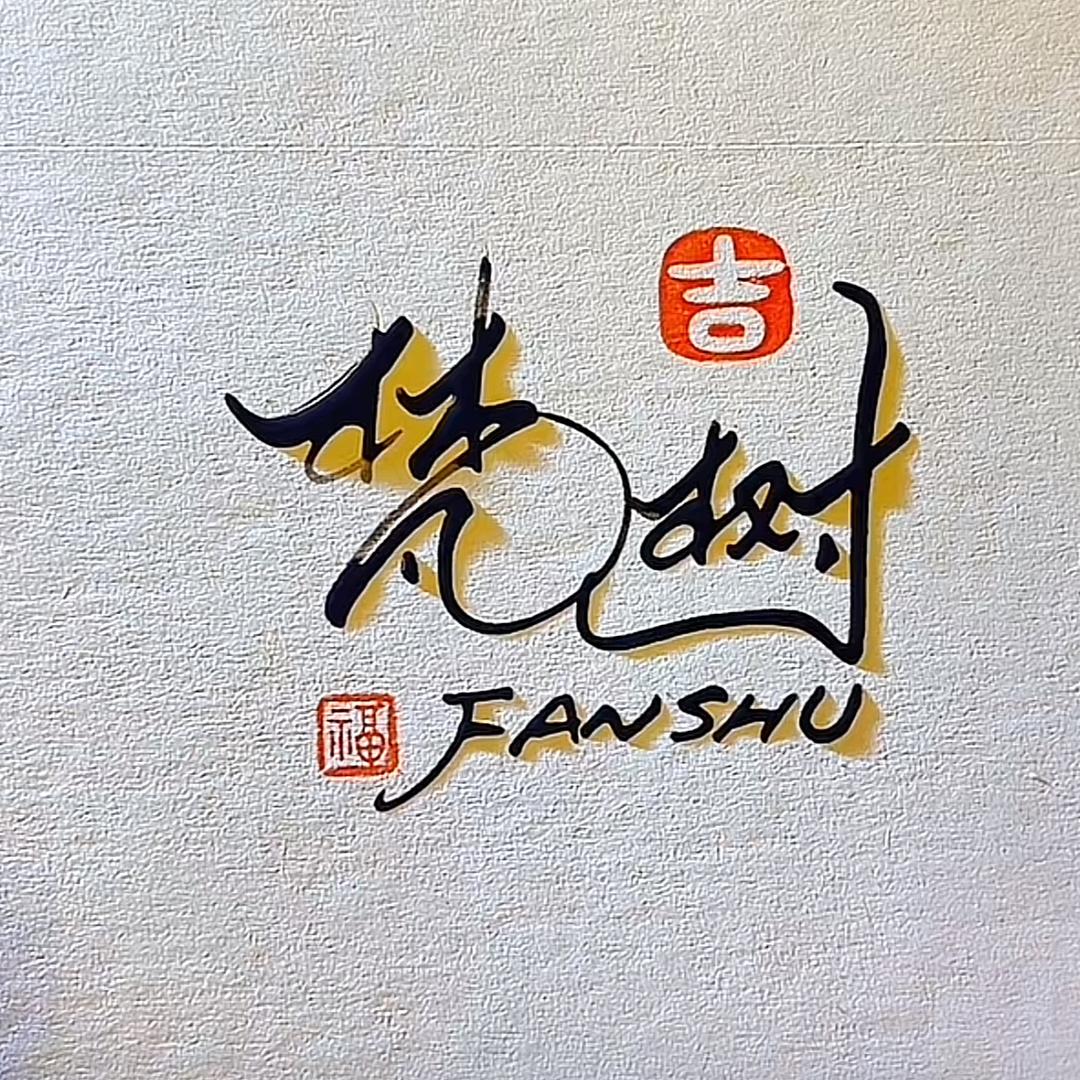 吉
梵树
福
FANSHU